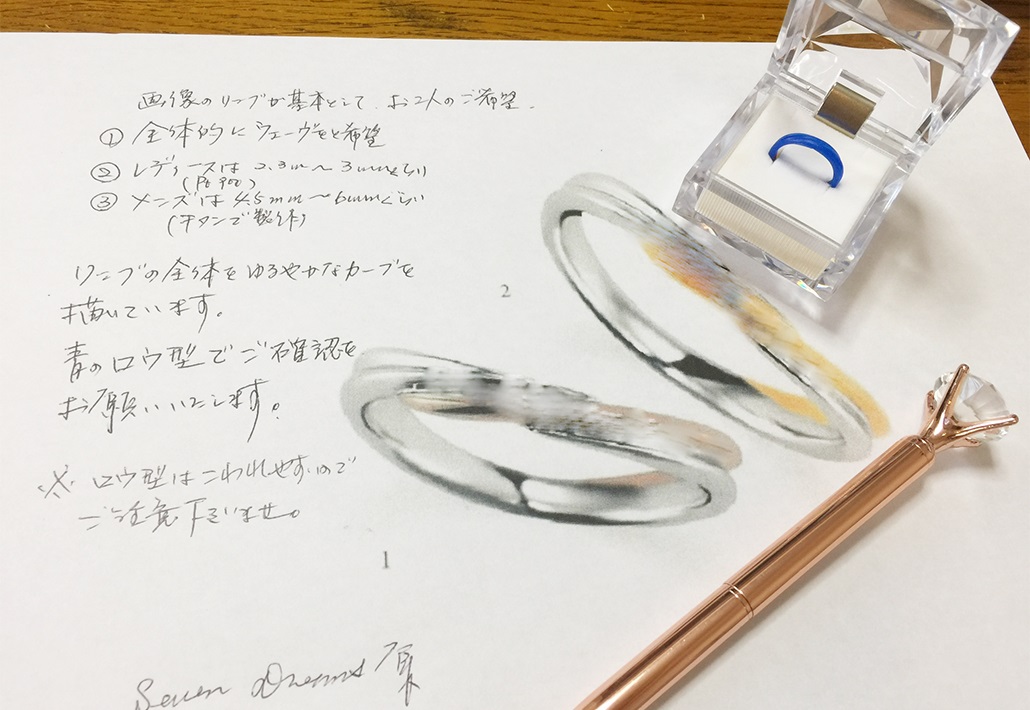 画像のリングが基本として、お2人のご希望。
① 全体的にウェーヴをと希望
② レディースは 2.3m〜3mmくらい
(Pt900)
③ メンズは 4.5mm〜6mmぐらい
(チタンで製作)
リングの全体をゆるやかなカーブを
描いています。
青のロウ型でご確認を
お願いいたします。
※ ロウ型はこわれやすいので
ご注意下さいませ。
2
1
Seven Dreams 原